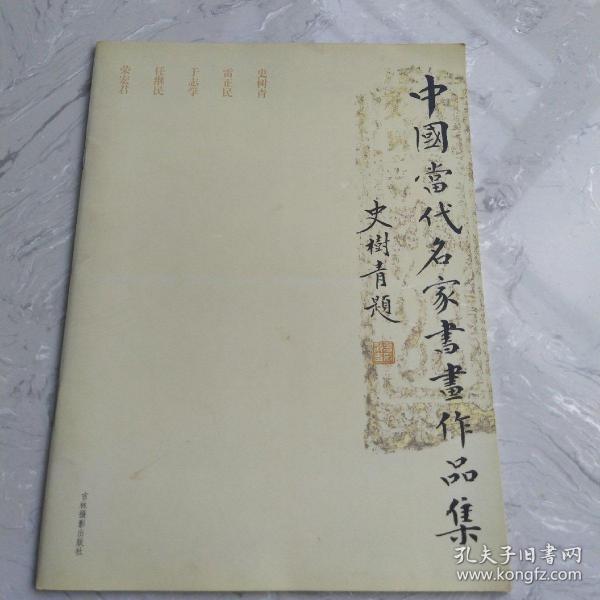 中國當代名家書畫作品集
史樹青題
史树青
雷正民
于志学
任继民
荣宏君
吉林攝影出版社
孔夫子旧书网
www.kongfz.com